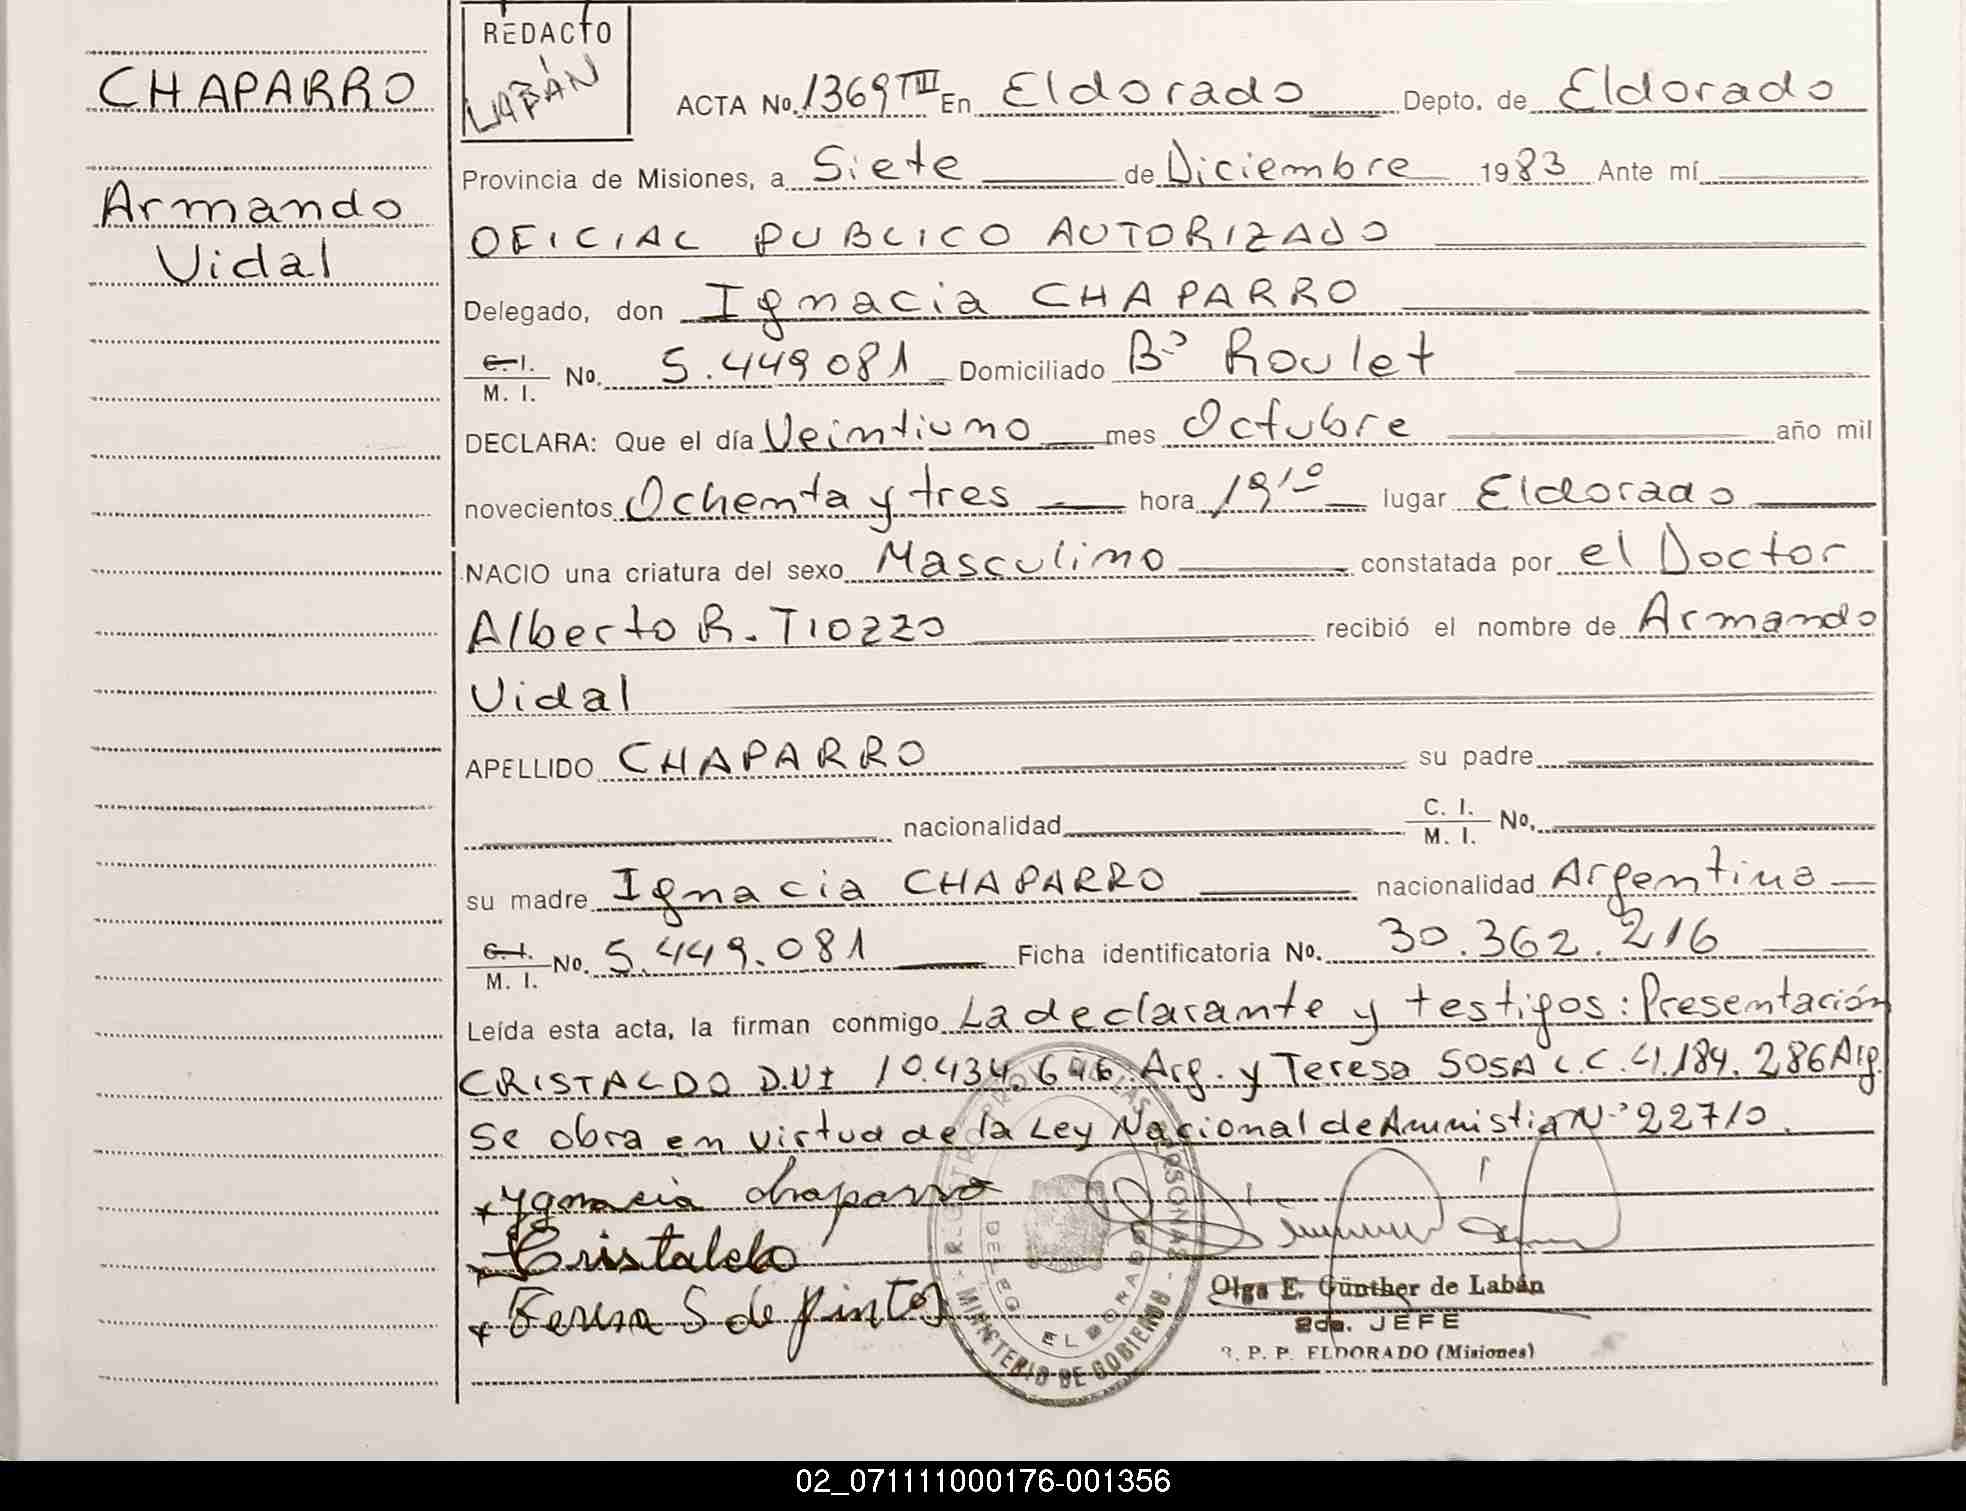 CHAPARRO
Armando
Vidal
REDACTO
LABÁN
ACTA No. 1369 TIII En Eldorado Depto. de Eldorado
Provincia de Misiones, a Siete de Diciembre 1983 Ante mí
OFICIAL PUBLICO AUTORIZADO
Delegado, don Ignacia CHAPARRO
C. I. / M. I. No. 5.449081 Domiciliado Bº Roulet
DECLARA: Que el día Veintiuno mes Octubre año mil
novecientos Ochenta y tres hora 19¹⁰ lugar Eldorado
NACIO una criatura del sexo Masculino constatada por el Doctor
Alberto R. TIOZZO recibió el nombre de Armando
Vidal
APELLIDO CHAPARRO su padre
nacionalidad C. I. / M. I. No.
su madre Ignacia CHAPARRO nacionalidad Argentina
C. I. / M. I. No. 5.449.081 Ficha identificatoria No. 30.362.216
Leída esta acta, la firman conmigo La declarante y testigos: Presentación
CRISTALDO D.N.I 10.434.646 Arg. y Teresa SOSA L.C. 4.184.286 Arg.
Se obra en virtud de la Ley Nacional de Amnistia Nº 22710.
x Ygnacia chaparro
x Cristaldo
x Teresa S de pintos
REGISTRO PROV. DE LAS PERSONAS
DELEG. ELDORADO
MINISTERIO DE GOBIERNO
Olga E. Günther de Labán
2da. JEFE
R. P. P. ELDORADO (Misiones)
02_071111000176-001356